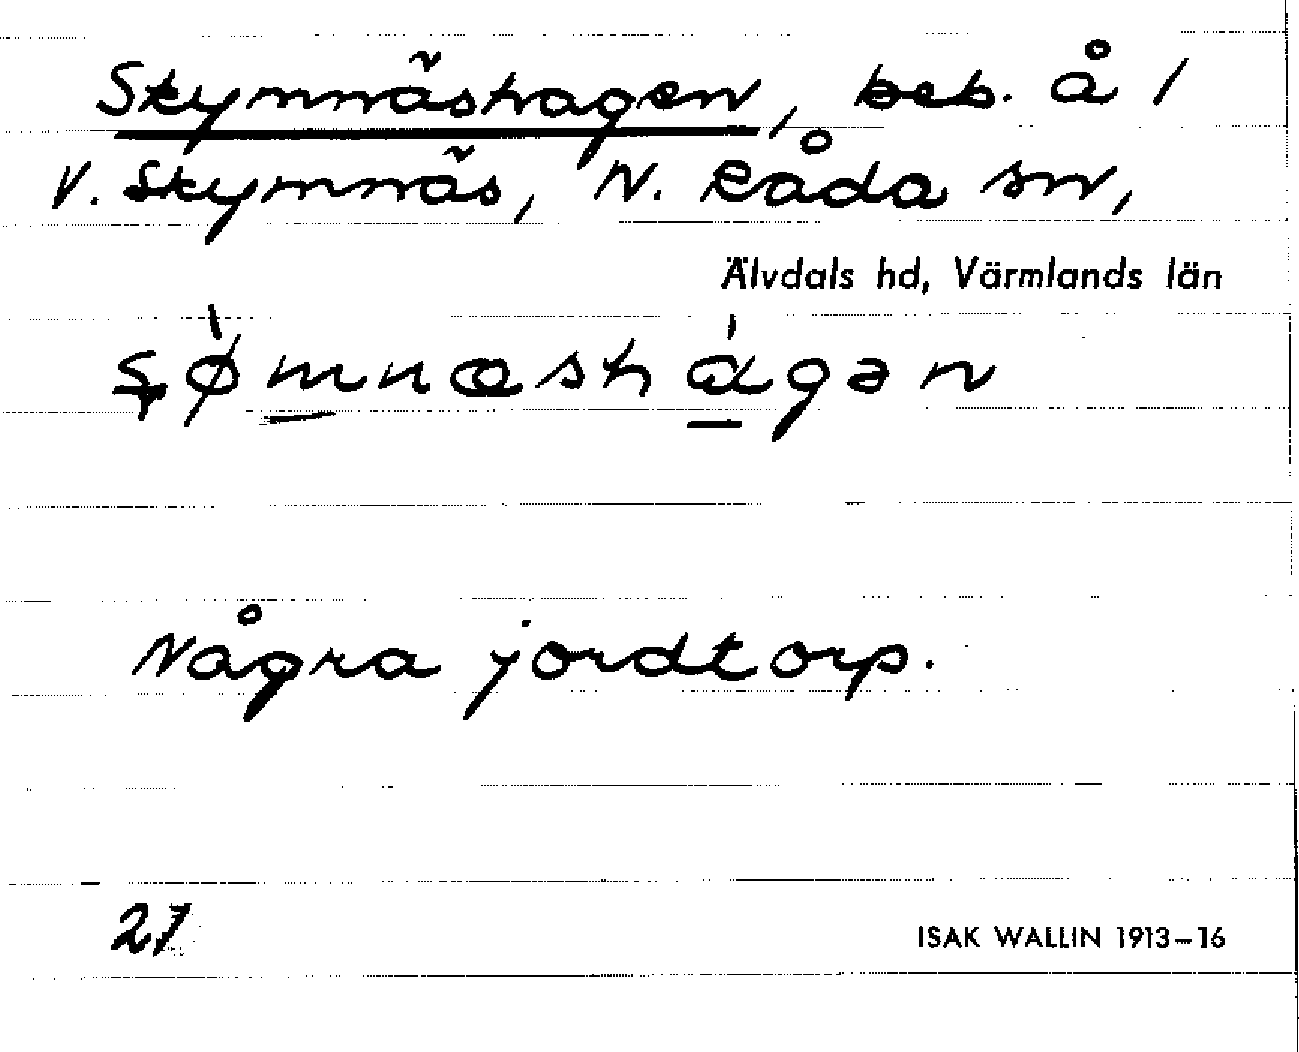 Skymnäshagen, beb. å 1
V. Skymnäs, N. Råda sn,
Älvdals hd, Värmlands län
Några jordtorp.
27
ISAK WALLIN 1913–16